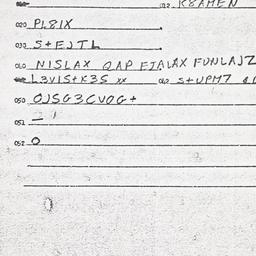 012 K8AMEN
020 PL8IX
030 S+EJTL
040 NISLAX QAP EZALAX FUNLAJZ
L3VIS+K3S xx 040 S+UPM7
050 OJSG3CVOG+
051 —
052 O